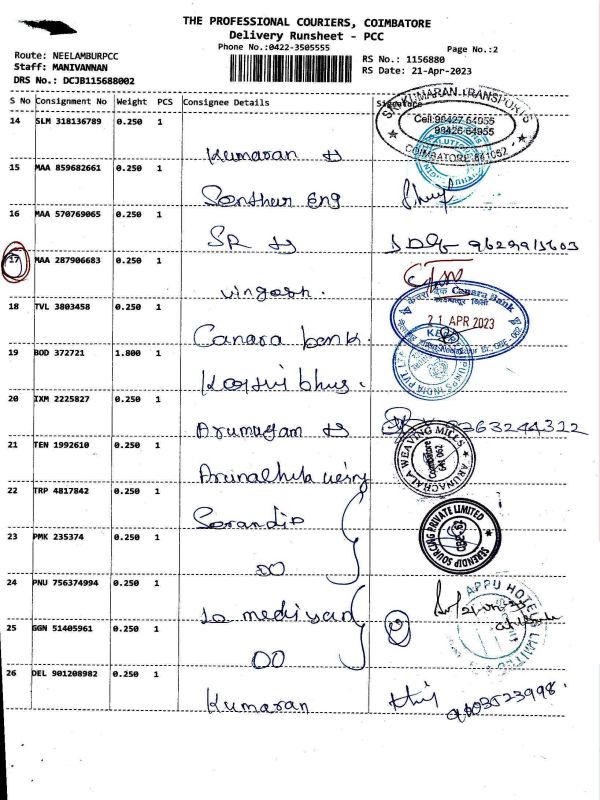 THE PROFESSIONAL COURIERS, COIMBATORE
Delivery Runsheet - PCC
Phone No.:0422-3505555
Page No.:2
Route: NEELAMBURPCC
Staff: MANIVANNAN
DRS No.: DCJB115688002
RS No.: 1156880
RS Date: 21-Apr-2023
S No Consignment No Weight PCS Consignee Details Signature
SRI KUMARAN TRANSPORTS
Cell:98427 64955
98426 64955
COIMBATORE 641062
14 SLM 318136789 0.250 1
Kumaran
15 MAA 859682661 0.250 1
Senthur Eng
16 MAA 570769065 0.250 1
SR
17 MAA 287906683 0.250 1
18 TVL 3803458 0.250 1
Canara bank.
Canara Bank
21 APR 2023
19 BOD 372721 1.800 1
20 IXM 2225827 0.250 1
Arumugam
21 TEN 1992610 0.250 1
ARUNACHALA WEAVING MILLS
Coimbatore
641 062
22 TRP 4817842 0.250 1
SERENDIP SOURCING PRIVATE LIMITED
23 PMK 235374 0.250 1
DO
24 PNU 756374994 0.250 1
APPU HOTELS LIMITED
25 GGN 51405961 0.250 1
DO
26 DEL 901208982 0.250 1
Kumaran